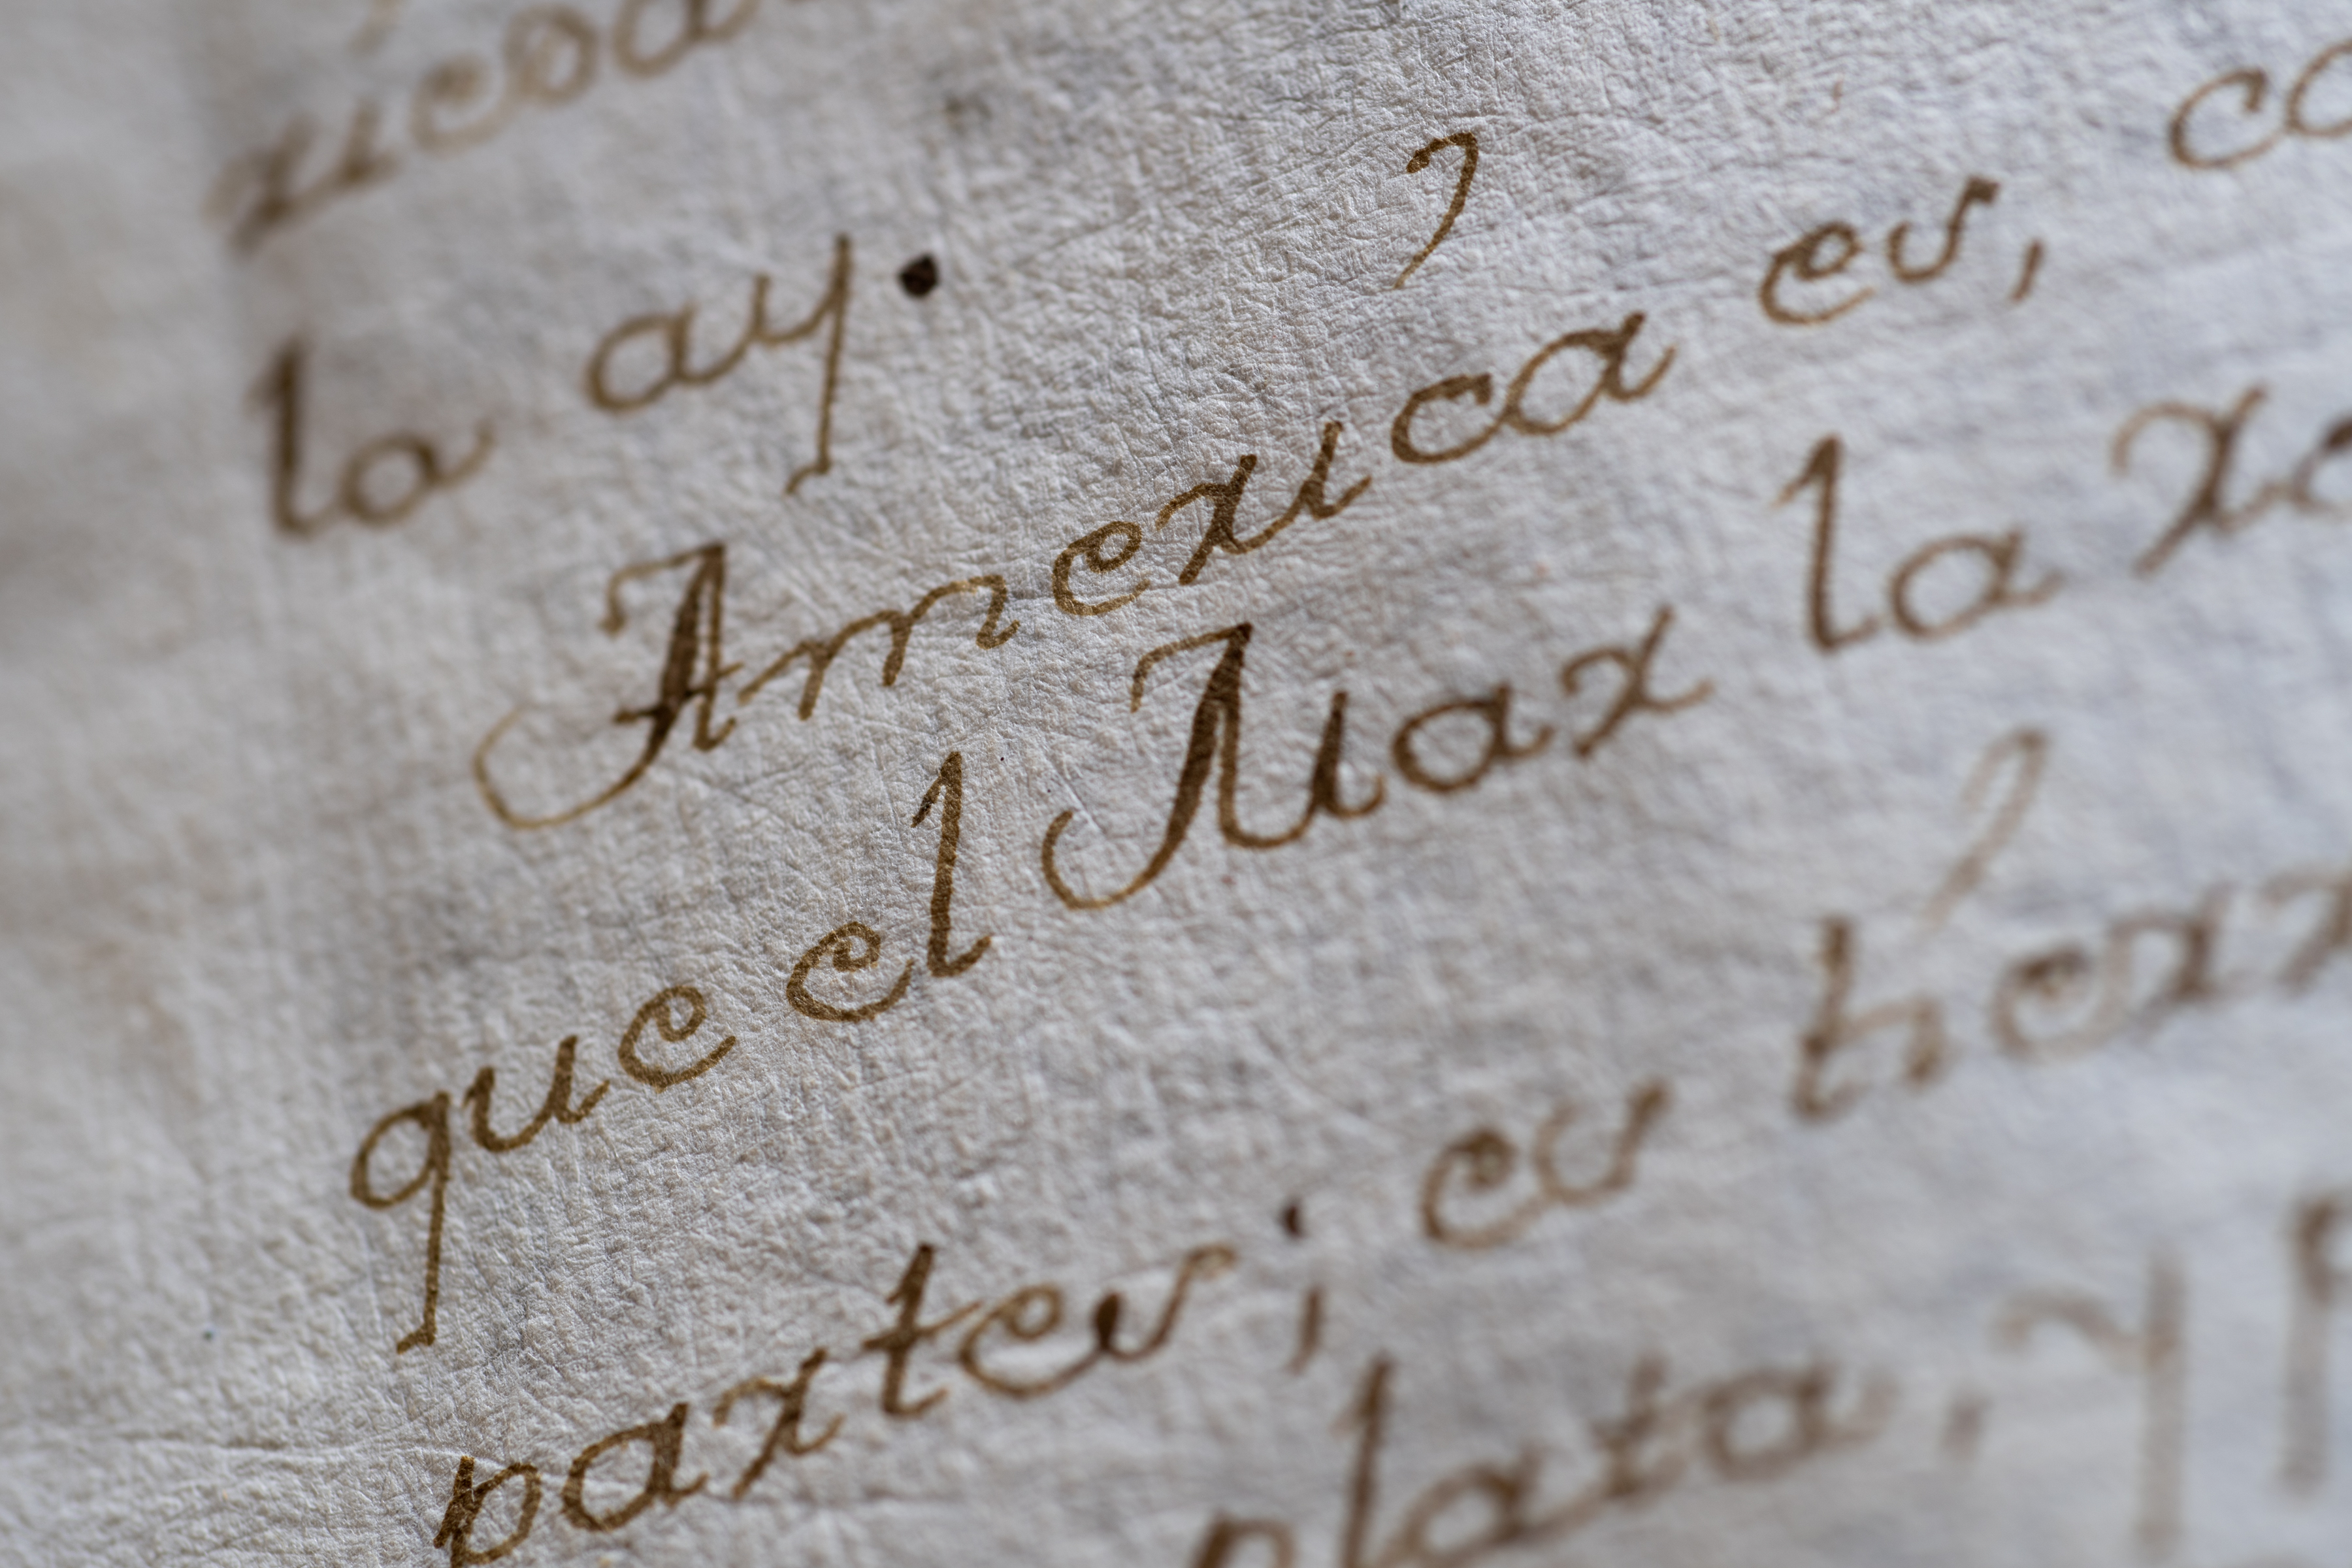 la ay.
America es, co
que el Mar la ro
partes; es her
plata, y